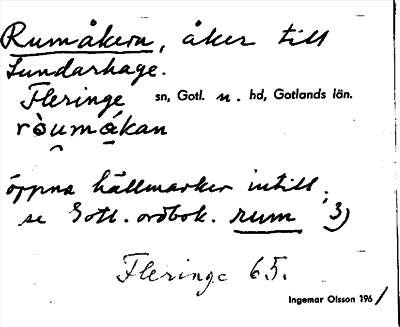 Rumåkern, åker till
Sundarhage.
Fleringe sn, Gotl. n. hd, Gotlands län.
ròumákan
öppna hällmarker intill;
se Gotl. ordbok. rum 3)
Fleringe 65.
Ingemar Olsson 1961